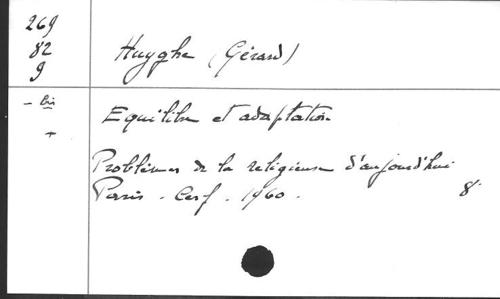 269
82
9
- bis
+
Huyghe (Gérard)
Equilibre et adaptation
Problèmes de la religieuse d'aujourd'hui
Paris - Cerf - 1960.
8°